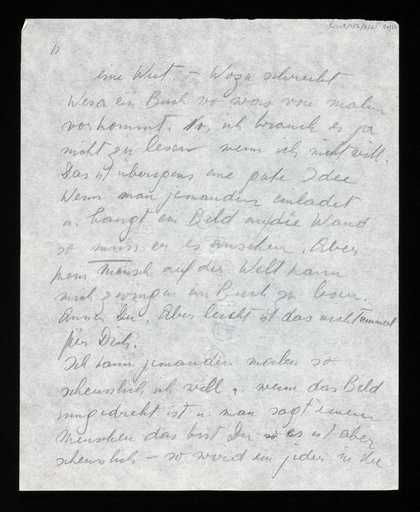 eine Wut. – Wozu schreibt
Wera ein Buch wo was von malen
vorkommt. Na, ich brauch es ja
nicht zu lesen wenn ich nicht will.
Das ist übrigens eine gute Idee
Wenn man jemanden einladet
u. hängt ein Bild auf die Wand
so muss er es ansehen. Aber
kein Mensch auf der Welt kann
mich zwingen ein Buch zu lesen.
Auch Du. Aber leicht ist das nicht einmal
für Dich.
Ich kann jemanden malen so
scheusslich ich will u. wenn das Bild
umgedreht ist u. man sagt einem
Menschen das bist Du so es ist aber
scheusslich – so wird ein jeder in die